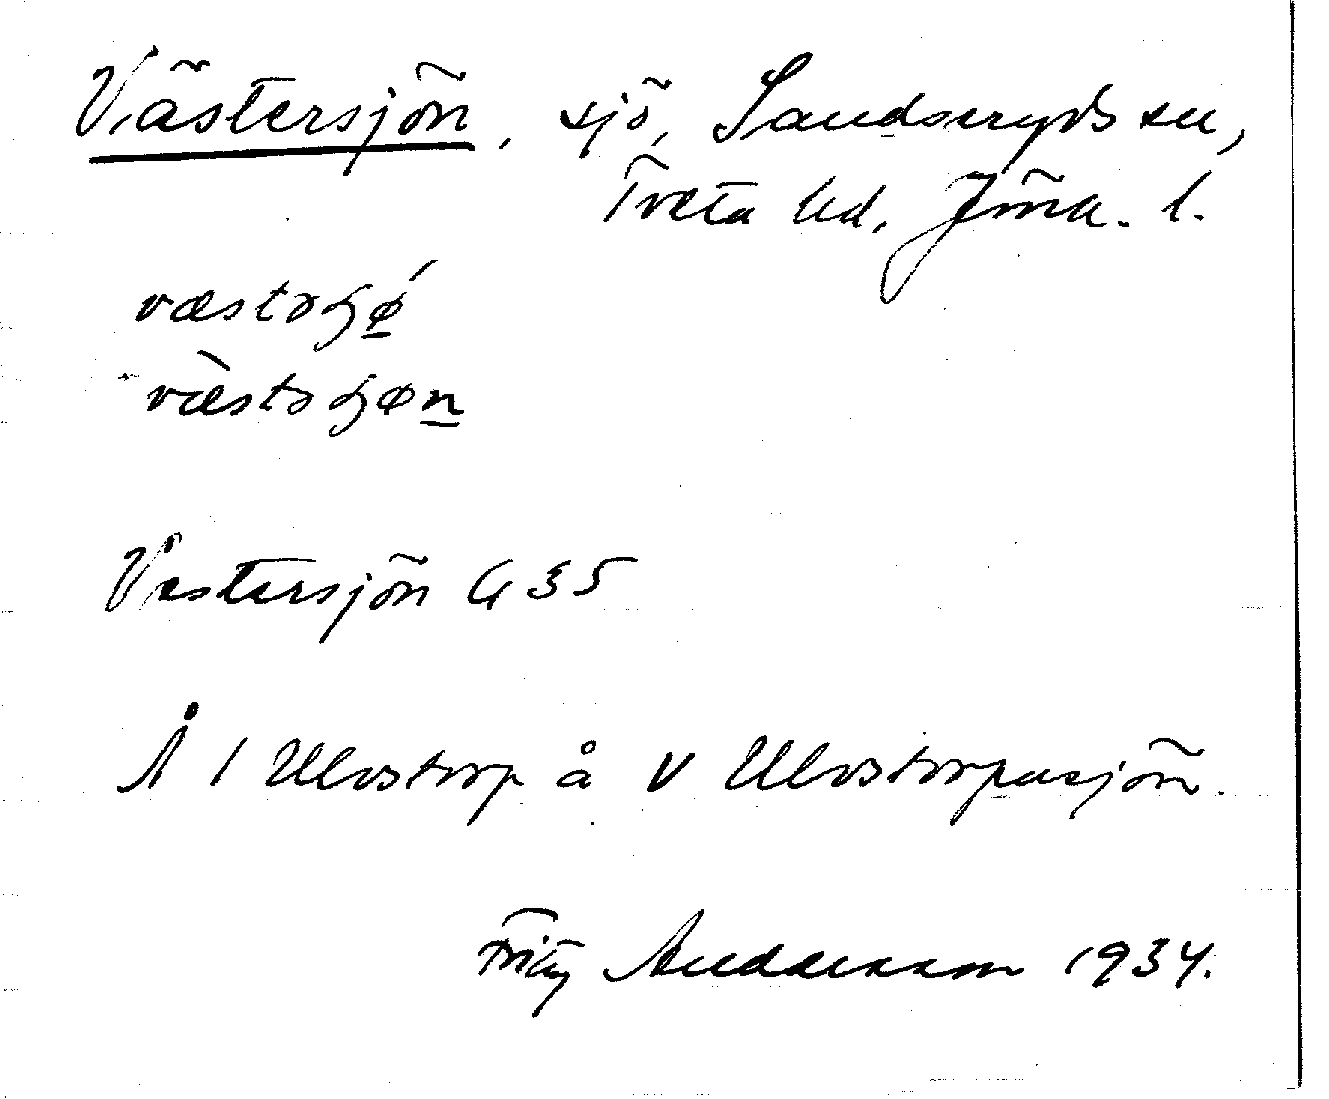 Västersjön, sjö, Sandseryds sn,
Tveta hd. Jönk. l.
væstəɧǿ
væ̀stəɧøn
Vestersjön G 35
Å / Ulvstorp å V Ulvstorpasjön.
Fritz Anderson 1934.